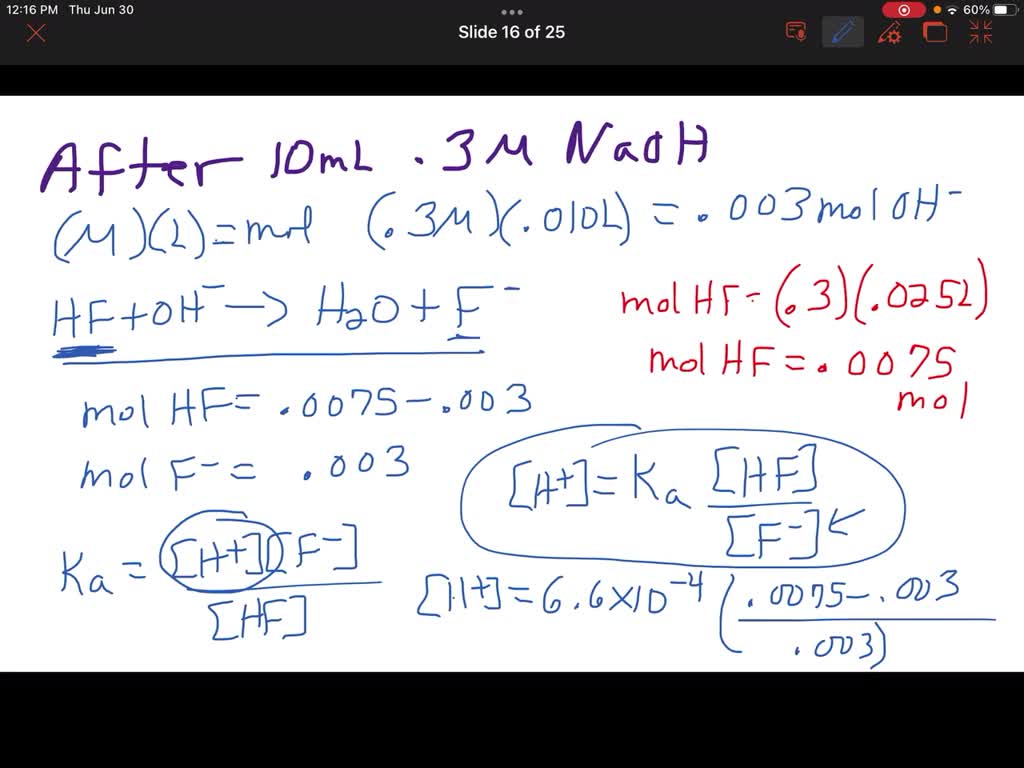 12:16 PM Thu Jun 30
60%
Slide 16 of 25
After 10mL .3M NaOH
(M)(L)=mol (.3M)(.010L) = .003 mol OH⁻
HF+OH⁻ → H₂O + F⁻
mol HF = (.3)(.025L)
mol HF = .0075
mol
mol HF= .0075-.003
mol F⁻ = .003
[H+]=Ka [HF]
[F⁻]
Ka = [H+][F⁻]
[HF]
[H+]=6.6×10⁻⁴ (.0075-.003
.003)